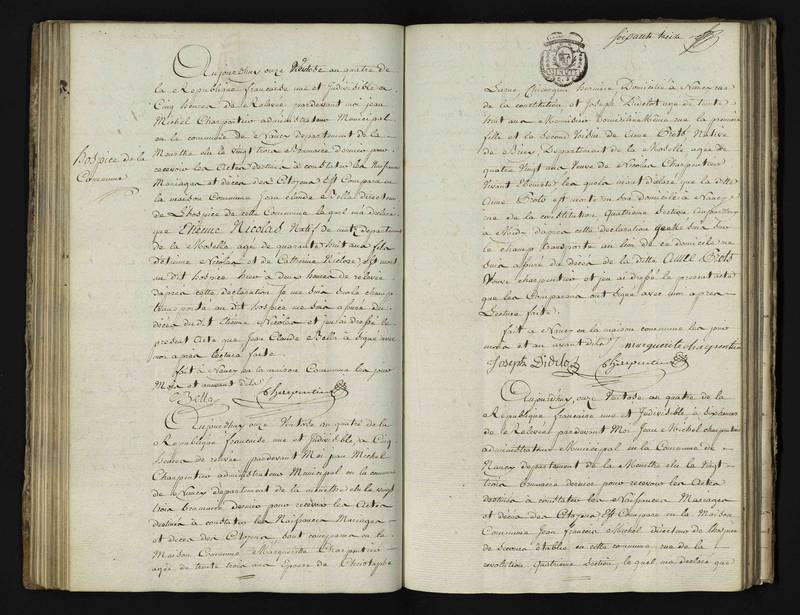 Aujourdhuy onze Ventose an quatre de
la République française une et Indivisible a
Cinq heures de Relevée pardevant moi jean
Michel Charpentier administrateur Municipal
en la commune de Nancy departement de la
Meurthe elu le vingt trois Brumaire dernier pour
recevoir les Actes destinés à constater les Naissances
Mariages et décès des Citoyens Est Comparu en
la maison Commune jean claude Bella directeur
de L'hospice de cette Commune lequel m'a déclaré
que Etienne Nicolas Natif de metz departement
de la Moselle agé de quarante huit ans fils
d'etienne Nicolas et de Catherine est mort
au dit hospice hier a deux heures de relevée
daprès cette déclaration je me suis sur le champ
transporté au dit hospice me suis assuré du
décès du dit Etienne Nicolas et j'en ai dressé le
présent Acte que Jean Claude Bella a signé avec
moi après lecture faite
fait à Nancy en la maison Commune les jour
Mois et an avant dits
Bella Charpentier
hospice de la
Commune
Aujourdhuy onze Ventose an quatre de la
République française une et Indivisible, a Cinq
heures de relevée pardevant Moi jean Michel
Charpentier administrateur Municipal en la commune
de Nancy departement de la meurthe elu le vingt
trois brumaire dernier pour recevoir les Actes
destinés à constater les Naissances Mariages
et décès des Citoyens, sont comparus en la
Maison Commune Marguerite Charpentier
agée de trente trois ans Epouse de Christophe
soixante treize
Larue, Domicilié à Nancy rue
de la constitution et Joseph Didelot agé de trente
huit ans Menuisier domicilié même rue la première
fille et la Second Voisin de Anne Native
de Departement de la Moselle agée de
quatre Vingt ans Veuve de Nicolas Charpentier
Vivant lesquels m'ont déclaré que la ditte
Anne est morte en son domicile à Nancy
rue de la constitution quatrieme Section, aujourdhuy
a Midy daprès cette déclaration je me suis sur
le champ transporté au lieu de ce domicile me
suis assuré du décès de la ditte Anne
Veuve charpentier et j'en ai dressé le présent acte
que les Comparans ont signé avec moi après
Lecture faite.
fait à Nancy en la maison commune les jour
mois et an avant dits marguerite charpentier
Joseph Didelot Charpentier
Aujourdhuy, onze Ventose an quatre de la
République française une et Indivisible, à six heures
de Relevée pardevant Moi Jean Michel charpentier
administrateur Municipal en la Commune de
Nancy departement de la Meurthe elu le Vingt
trois brumaire dernier pour recevoir les Actes
destinés à constater les Naissances Mariages
et décès des Citoyens Est Comparu en la Maison
Commune Jean francois Michel directeur de l'hospice
de Secours établis en cette commune, rue de la
révolution quatrieme Section, lequel m'a déclaré que